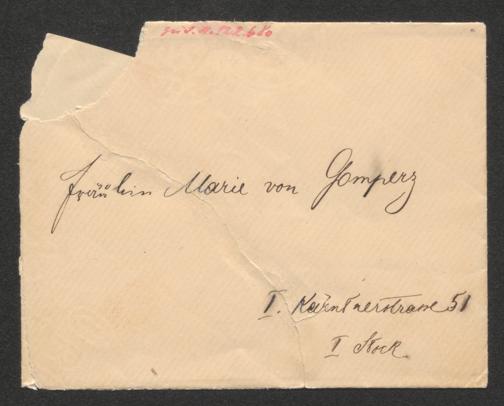 Fräulein Marie von Gomperz
I. Kärntnerstrasse 51
I Stock.